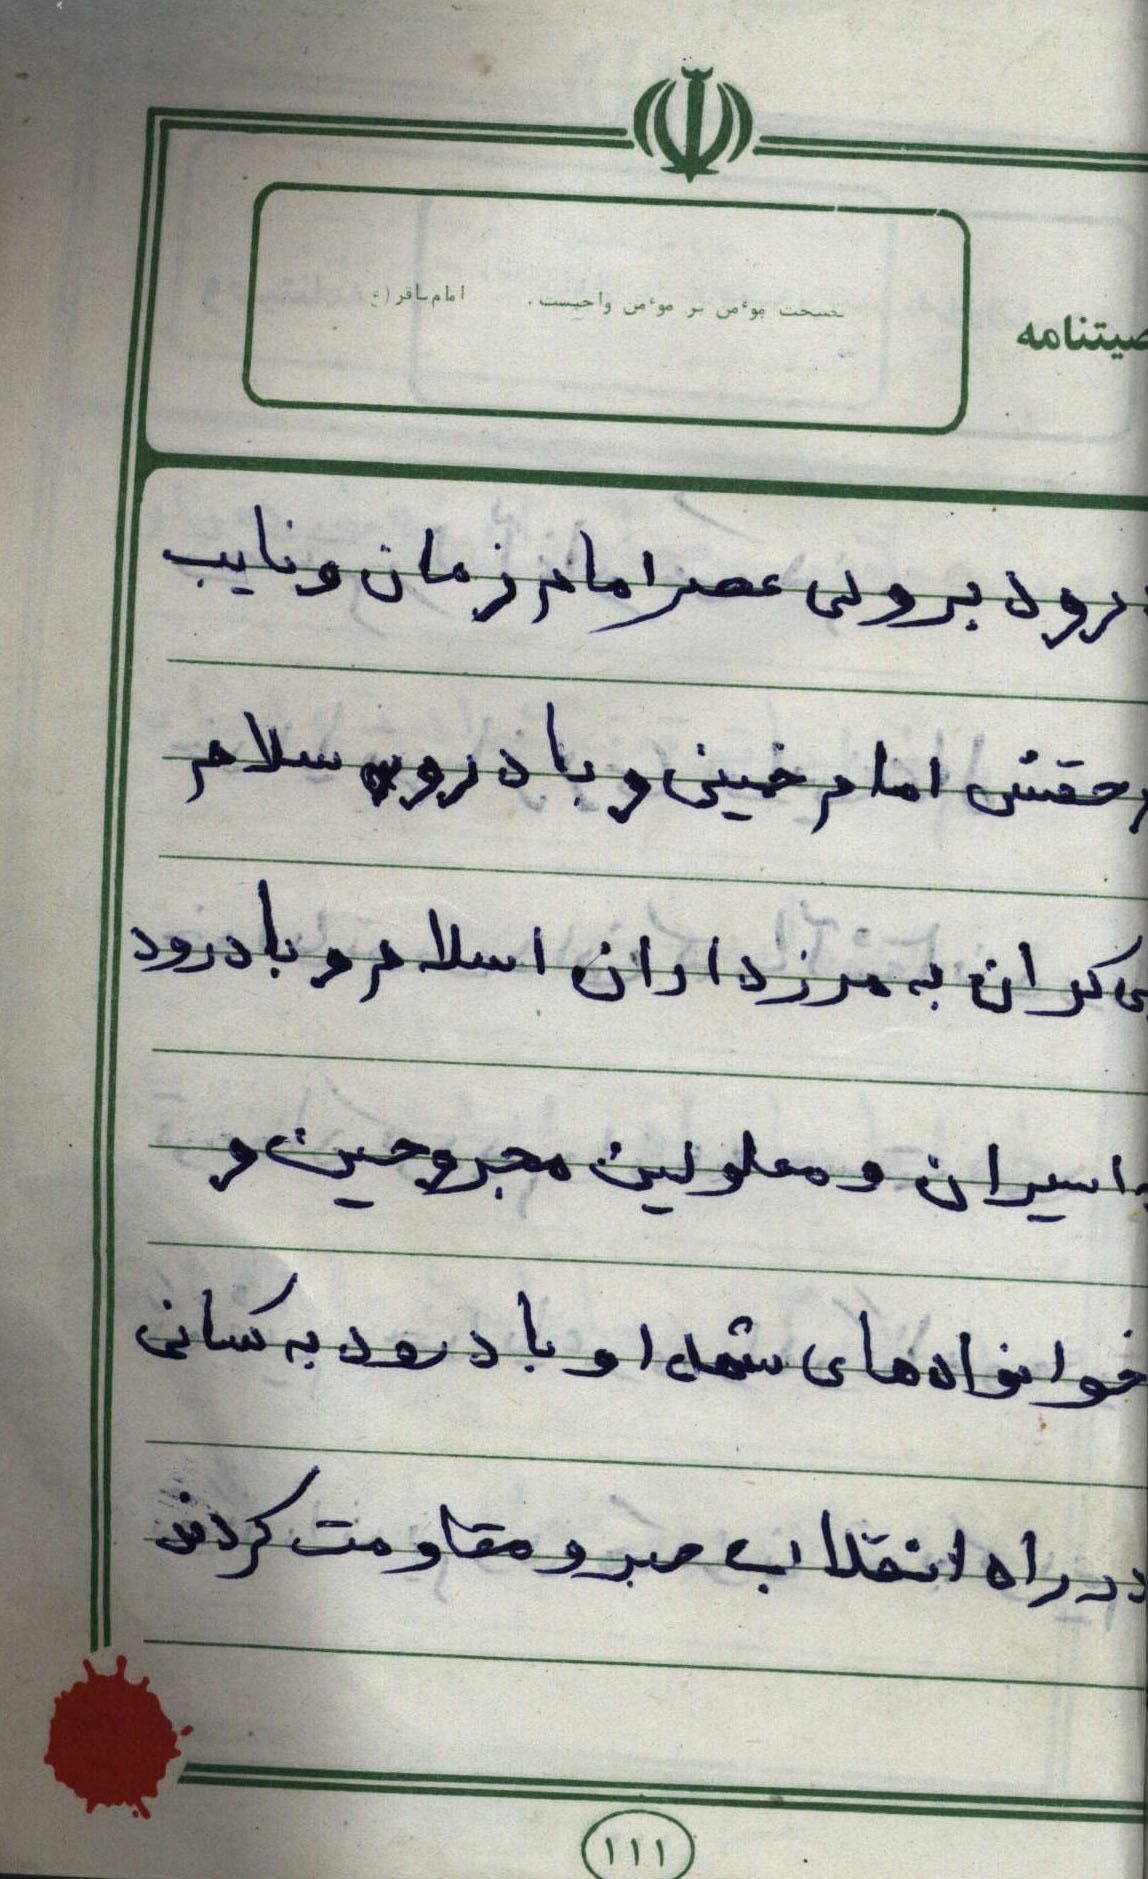 نصیحت موٴمن بر موٴمن واجبست. امام باقر (ع)
صیتنامه
درود بر ولی عصر امام زمان و نایب
بر حقش امام خمینی و با درود سلام
بی کران به مرزداران اسلام و با درود
به اسیران و معلولین مجروحین و
خوانواده‌های شهدا و با درود به کسانی
در راه انقلاب صبر و مقاومت کردند
۱۱۱